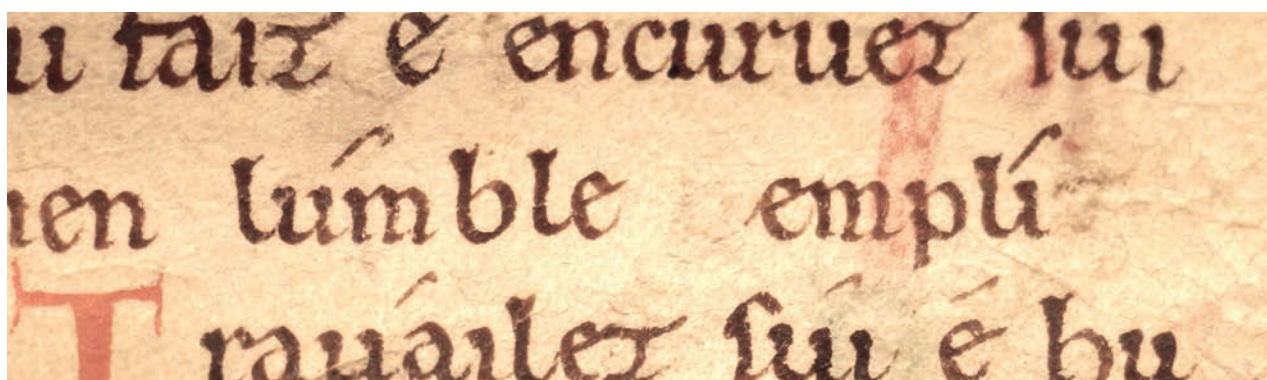 u faiz e encuruez sui
en lúmble emplí
Trauáilez súi é hu